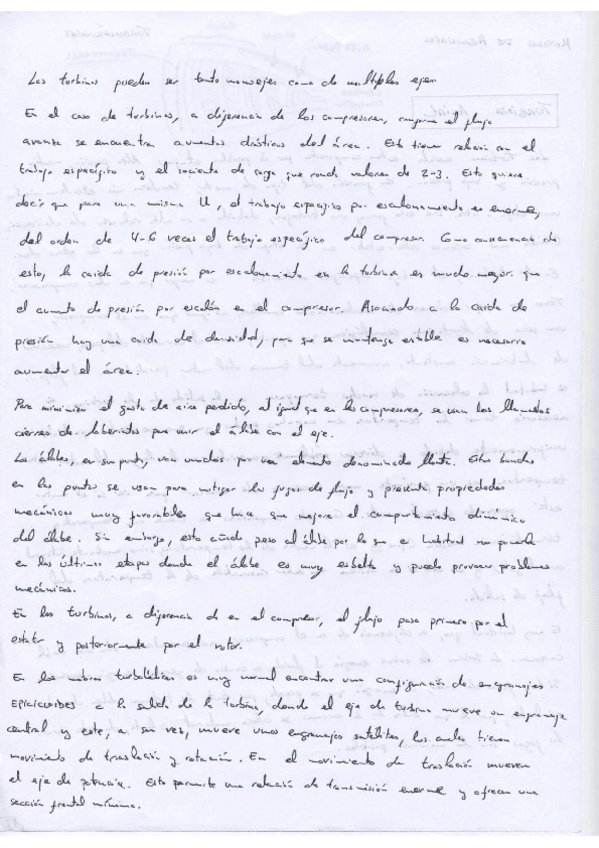 Las turbinas pueden ser tanto monoejes como de multiples ejes.
En el caso de turbinas, a diferencia de los compresores, conforme el flujo
avanza se encuentra aumentos drásticos del área. Esto tiene relación con el
trabajo específico y el cociente de carga que ronda valores de 2-3. Esto quiere
decir que para una misma U, el trabajo específico por escalonamiento es enorme,
del orden de 4-6 veces el trabajo específico del compresor. Como consecuencia de
esto, la caida de presión por escalonamiento en la turbina es mucho mayor que
el aumento de presión por escalón en el compresor. Asociado a la caida de
presión hay una caida de densidad, para que se mantenga estable es necesario
aumentar el área.
Para minimizar el gasto de aire perdido, al igual que en los compresores, se usan los llamados
cierres de laberintos para unir el álabe con el eje.
Los álabes, en su punta, van unidos por un elemento denominado llanta. Estas bandas
en las puntas se usan para mitigar las fugas de flujo y presenta propiedades
mecánicas muy favorables que hace que mejore el comportamiento dinámico
del álabe. Sin embargo, esto añade peso al álabe por lo que es habitual no ponerla
en las últimas etapas donde el álabe es muy esbelto y puede provocar problemas
mecánicos.
En las turbinas, a diferencia de en el compresor, el flujo pasa primero por el
estator y posteriormente por el rotor.
En los turbohélices es muy normal encontrar una configuración de engranajes
EPICICLOIDES a la salida de la turbina, donde el eje de turbina mueve un engranaje
central y este, a su vez, mueve unos engranajes satélites, los cuales tienen
movimiento de traslación y rotación. En el movimiento de traslación mueven
el eje de potencia. Esto permite una relación de transmisión enorme y ofrecen una
sección frontal mínima.